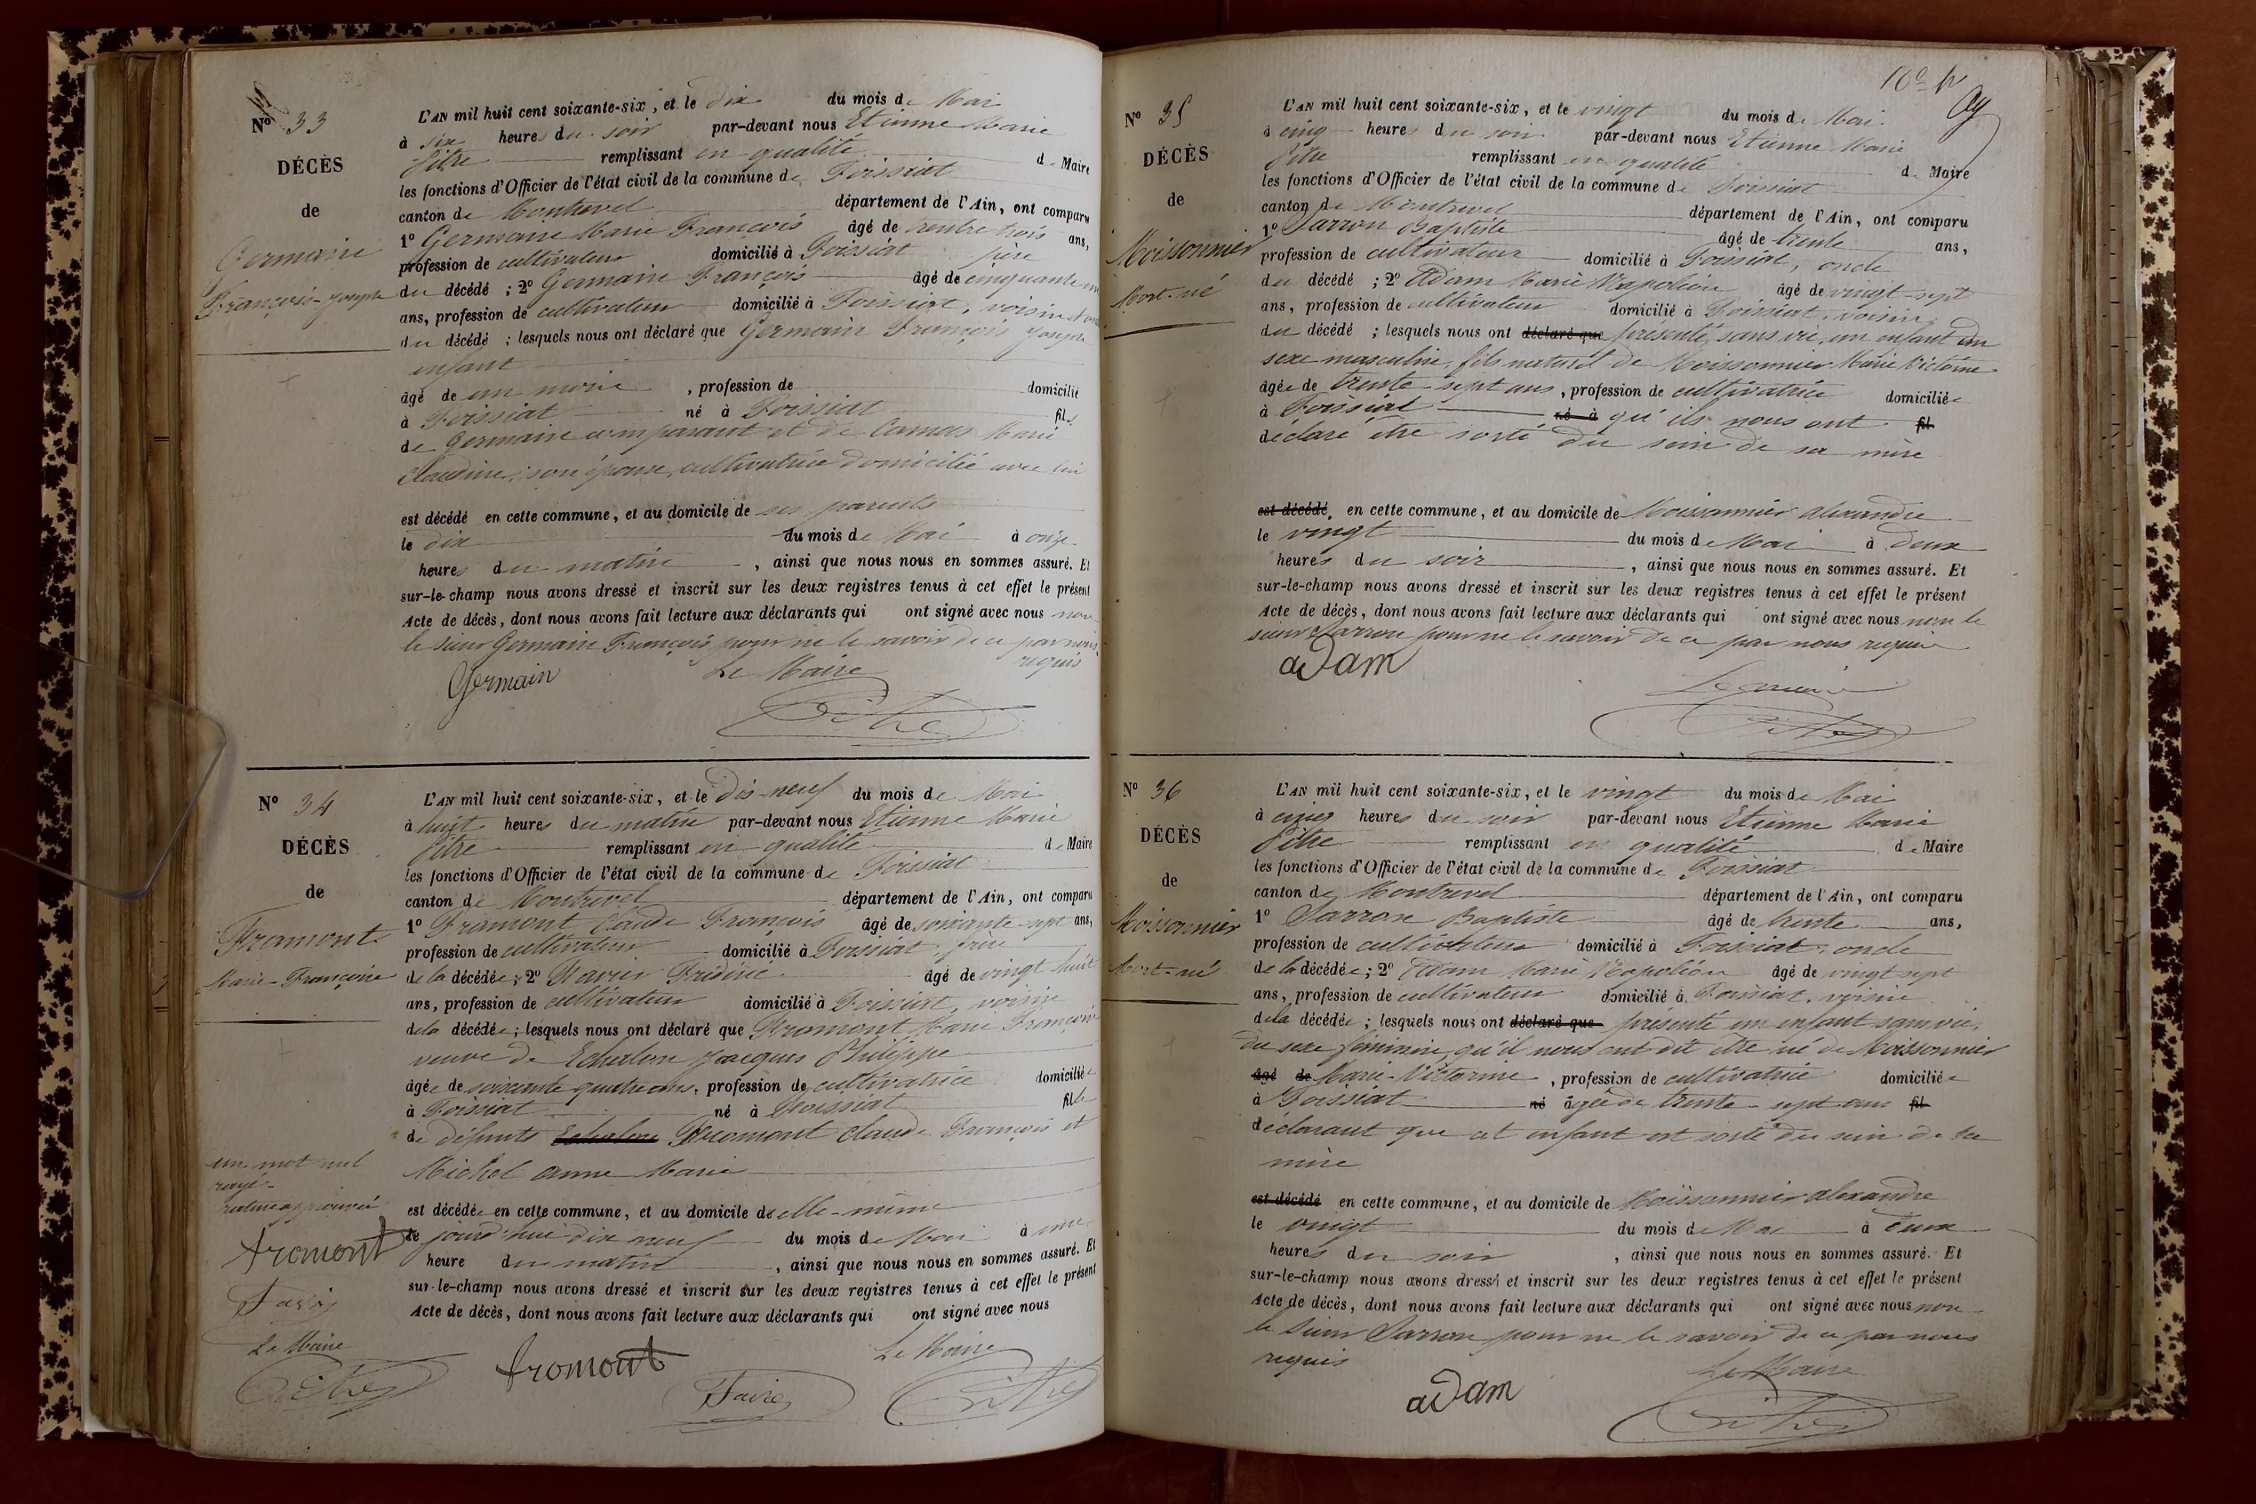 Nº 33
DÉCÈS
de
Germain
François-Joseph
L'AN mil huit cent soixante-six, et le dix du mois de Mai
à six heures du soir par-devant nous Etienne Marie
Pitre remplissant en qualité de Maire
les fonctions d'Officier de l'état civil de la commune de Foissiat
canton de Montrevel département de l'Ain, ont comparu
1º Germain Marie François âgé de trente trois ans,
profession de cultivateur domicilié à Foissiat père
du décédé ; 2º Germain François âgé de cinquante
ans, profession de cultivateur domicilié à Foissiat, voisin
du décédé ; lesquels nous ont déclaré que Germain François Joseph
enfant
âgé de un mois, profession de domicilié
à Foissiat né à Foissiat fils
de Germain comparant et de Camus Marie
Claudine, son épouse, cultivatrice domicilié avec lui
est décédé en cette commune, et au domicile de ses parents
le dix du mois de Mai à onze
heures du matin, ainsi que nous nous en sommes assuré. Et
sur-le-champ nous avons dressé et inscrit sur les deux registres tenus à cet effet le présent
Acte de décès, dont nous avons fait lecture aux déclarants qui ont signé avec nous non
le sieur Germain François pour ne le savoir de ce par nous
requis
Germain Le Maire
Pitre
Nº 34
DÉCÈS
de
Fromont
Marie-Françoise
L'AN mil huit cent soixante-six, et le dix-neuf du mois de Mai
à huit heures du matin par-devant nous Etienne Marie
Pitre remplissant en qualité de Maire
les fonctions d'Officier de l'état civil de la commune de Foissiat
canton de Montrevel département de l'Ain, ont comparu
1º Fromont Claude François âgé de soixante-sept ans,
profession de cultivateur domicilié à Foissiat, frère
de la décédée ; 2º Favier Frédéric âgé de vingt huit
ans, profession de cultivateur domicilié à Foissiat, voisin
de la décédée ; lesquels nous ont déclaré que Fromont Marie Françoise
veuve de Echalon Jacques Philippe
âgée de soixante quatre ans, profession de cultivatrice domiciliée
à Foissiat né à Foissiat fille
de défunts Echalon Fromont Claude François et
Michel Anne Marie
est décédée en cette commune, et au domicile de elle-même
le jourd'hui dix neuf du mois de Mai à une
heure du matin, ainsi que nous nous en sommes assuré. Et
sur-le-champ nous avons dressé et inscrit sur les deux registres tenus à cet effet le présent
Acte de décès, dont nous avons fait lecture aux déclarants qui ont signé avec nous
un mot nul
rayé
rature approuvée
fromont
Favier
Le Maire
Pitre
fromont Favier Le Maire
Pitre
Nº 35
DÉCÈS
de
Moissonnier
Mort-né
L'AN mil huit cent soixante-six, et le vingt du mois de Mai
à cinq heures du soir par-devant nous Etienne Marie
Pitre remplissant en qualité de Maire
les fonctions d'Officier de l'état civil de la commune de Foissiat
canton de Montrevel département de l'Ain, ont comparu
1º Sarron Baptiste âgé de trente ans,
profession de cultivateur domicilié à Foissiat, oncle
du décédé ; 2º Adam Marie Napoléon âgé de vingt-sept
ans, profession de cultivateur domicilié à Foissiat, voisin
du décédé ; lesquels nous ont déclaré que présenté, sans vie, un enfant du
sexe masculin, fils naturel de Moissonnier Marie Victorine
âgée de trente sept ans, profession de cultivatrice domiciliée
à Foissiat né à qu'ils nous ont fil
déclaré être sorti du sein de sa mère
est décédé en cette commune, et au domicile de Moissonnier Alexandre
le vingt du mois de Mai à deux
heures du soir, ainsi que nous nous en sommes assuré. Et
sur-le-champ nous avons dressé et inscrit sur les deux registres tenus à cet effet le présent
Acte de décès, dont nous avons fait lecture aux déclarants qui ont signé avec nous non le
sieur Sarron pour ne le savoir de ce par nous requis
adam
Le maire
Pitre
Nº 36
DÉCÈS
de
Moissonnier
Mort-né
L'AN mil huit cent soixante-six, et le vingt du mois de Mai
à cinq heures du soir par-devant nous Etienne Marie
Pitre remplissant en qualité de Maire
les fonctions d'Officier de l'état civil de la commune de Foissiat
canton de Montrevel département de l'Ain, ont comparu
1º Sarron Baptiste âgé de trente ans,
profession de cultivateur domicilié à Foissiat, oncle
de la décédée ; 2º Adam Marie Napoléon âgé de vingt sept
ans, profession de cultivateur domicilié à Foissiat, voisin
de la décédée ; lesquels nous ont déclaré que présenté un enfant sans vie,
du sexe féminin, qu'il nous ont dit être né de Moissonnier
âgé de Marie-Victorine, profession de cultivatrice domiciliée
à Foissiat né âgée de trente-sept ans fil
déclarant que cet enfant est sorti du sein de sa
mère
est décédé en cette commune, et au domicile de Moissonnier Alexandre
le vingt du mois de Mai à deux
heures du soir, ainsi que nous nous en sommes assuré. Et
sur-le-champ nous avons dressé et inscrit sur les deux registres tenus à cet effet le présent
Acte de décès, dont nous avons fait lecture aux déclarants qui ont signé avec nous non
le sieur Sarron pour ne le savoir de ce par nous
requis
adam Le Maire
Pitre